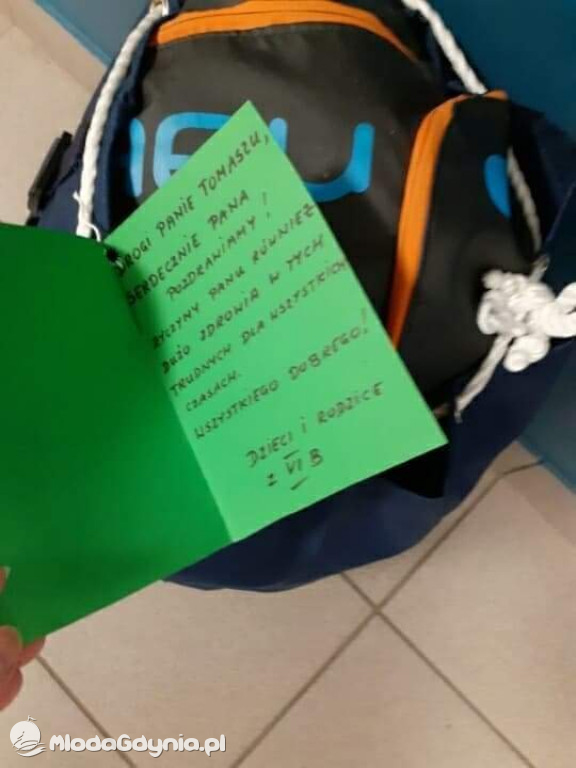 DROGI PANIE TOMASZU,
SERDECZNIE PANA
POZDRAWIAMY!
ŻYCZYMY PANU RÓWNIEŻ
DUŻO ZDROWIA W TYCH
TRUDNYCH DLA WSZYSTKICH
CZASACH.
WSZYSTKIEGO DOBREGO!
DZIECI i RODZICE
z VI B
MlodaGdynia.pl